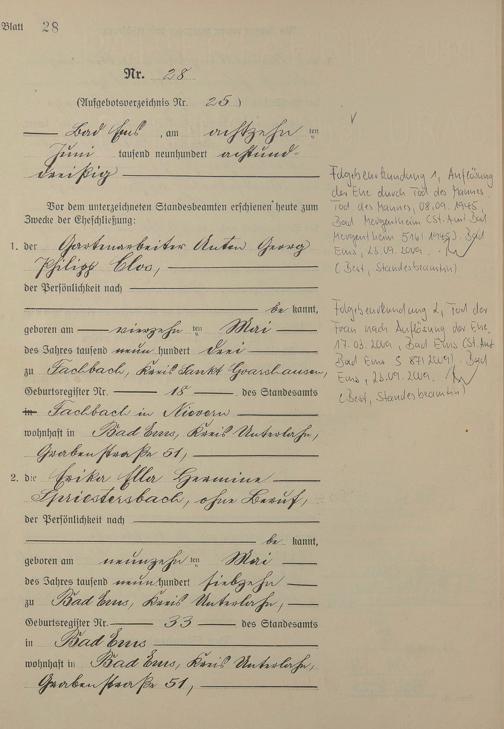 Blatt 28
Nr. 28
(Aufgebotsverzeichnis Nr. 25)
Bad Ems, am achtzehnten
Juni tausend neunhundert achtund-
dreißig
Vor dem unterzeichneten Standesbeamten erschienen heute zum
Zwecke der Eheschließung:
1. der Gartenarbeiter Anton Georg
Philipp Clos,
der Persönlichkeit nach
be kannt,
geboren am vierzehn ten Mai
des Jahres tausend neun hundert drei
zu Fachbach, Kreis Sankt Goarshausen,
Geburtsregister Nr. 18 des Standesamts
in Fachbach in Nievern
wohnhaft in Bad Ems, Kreis Unterlahn,
Grabenstraße 51,
2. die Erika Ella Hermine
Spriestersbach, ohne Beruf,
der Persönlichkeit nach
be kannt,
geboren am neunzehn ten Mai
des Jahres tausend neun hundert siebzehn
zu Bad Ems, Kreis Unterlahn,
Geburtsregister Nr. 33 des Standesamts
in Bad Ems
wohnhaft in Bad Ems, Kreis Unterlahn,
Grabenstraße 51,
Folgebeurkundung 1, Auflösung
der Ehe durch Tod des Mannes
Tod des Mannes, 08.09.1945,
Bad Mergentheim (St.Amt Bad
Mergentheim 516/1945). Bad
Ems, 23.09.2009.
(Best, Standesbeamtin)
Folgebeurkundung 2, Tod der
Frau nach Auflösung der Ehe,
17.03.2009, Bad Ems (St.Amt
Bad Ems S 87/2009). Bad
Ems, 23.09.2009.
(Best, Standesbeamtin)